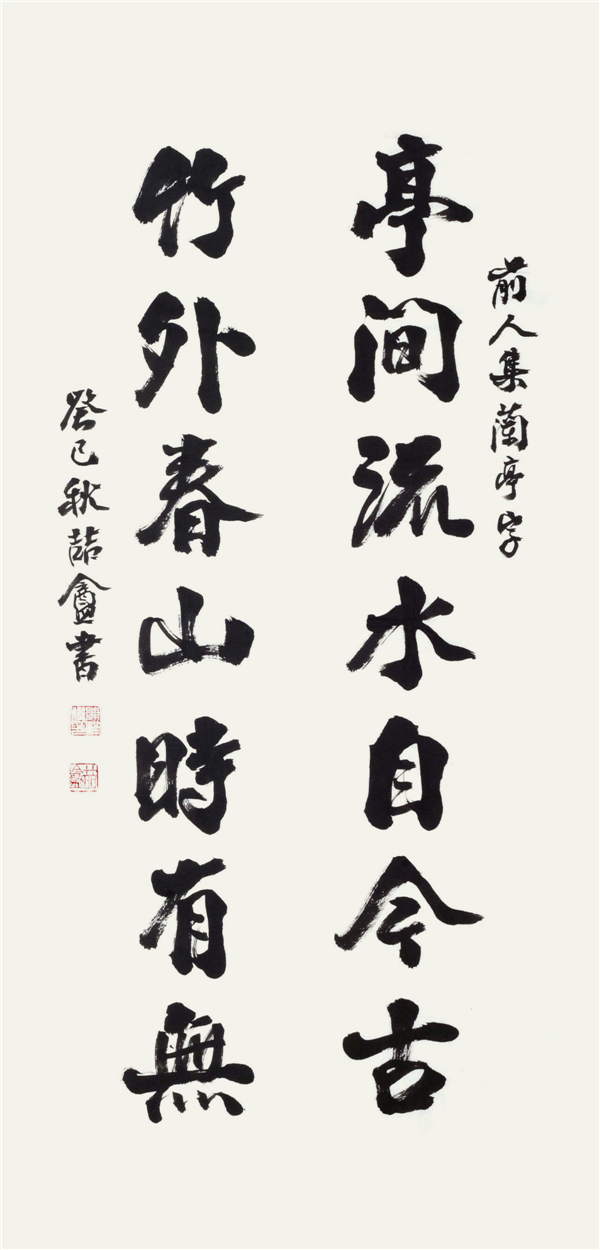 前人集蘭亭字
亭間流水自今古
竹外春山時有無
癸巳秋喆盦書